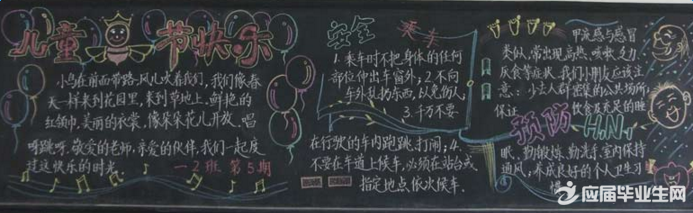 儿童节快乐
小鸟在前面带路,风儿吹着我们,我们像春
天一样来到花园里,来到草地上。鲜艳的
红领巾,美丽的衣裳,像朵朵花儿开放。唱
呀跳呀,敬爱的老师,亲爱的伙伴,我们一起度
过这快乐的时光。
一2班 第5期
安全 乘车
1.乘车时不把身体的任何
部位伸出车窗外;2.不向
车外乱扔东西,以免伤人;
3.千万不要
在行驶的车内跑跳、打闹;4.
不要在车道上候车,必须在站台或
指定地点依次候车。
甲流感与感冒
类似,常出现高热、咳嗽、乏力、
厌食等症状。我们小朋友应该注
意:少去人群密集的公共场所,
保证饮食及充足的睡
预防H1N1
眠、勤锻炼、勤洗手,室内保持
通风,养成良好的个人卫生习
惯。
应届毕业生网